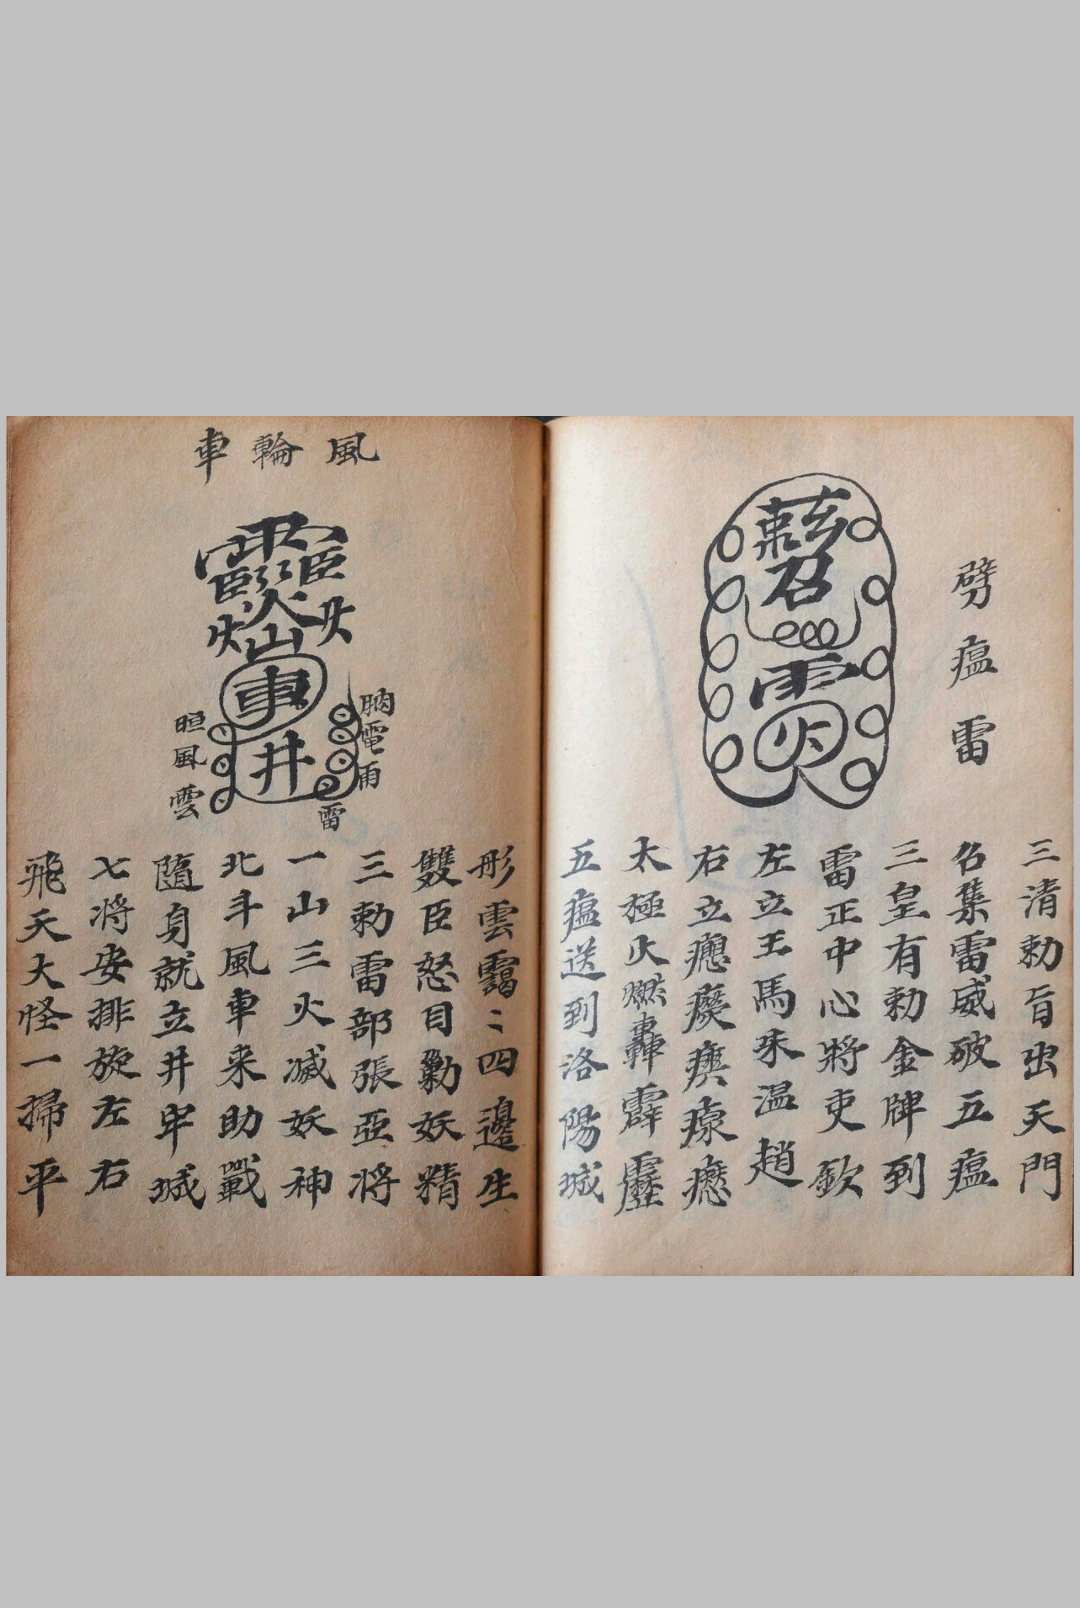 劈瘟雷
勅
召
雨
火
三清勅旨出天門
召集雷威破五瘟
三皇有勅金牌到
雷正中心將吏欽
左立王馬朱温趙
右立瘛癀瘼瘝癦
太極火燃轟霹靂
五瘟送到洛陽城
風輪車
車
井
雷
雨
風
雲
形雲靄〻四邊生
雙臣怒目勦妖精
三勅雷部張亞将
一山三火滅妖神
北斗風車来助戰
隨身就立井牢城
七将安排旋左右
飛天大怪一掃平